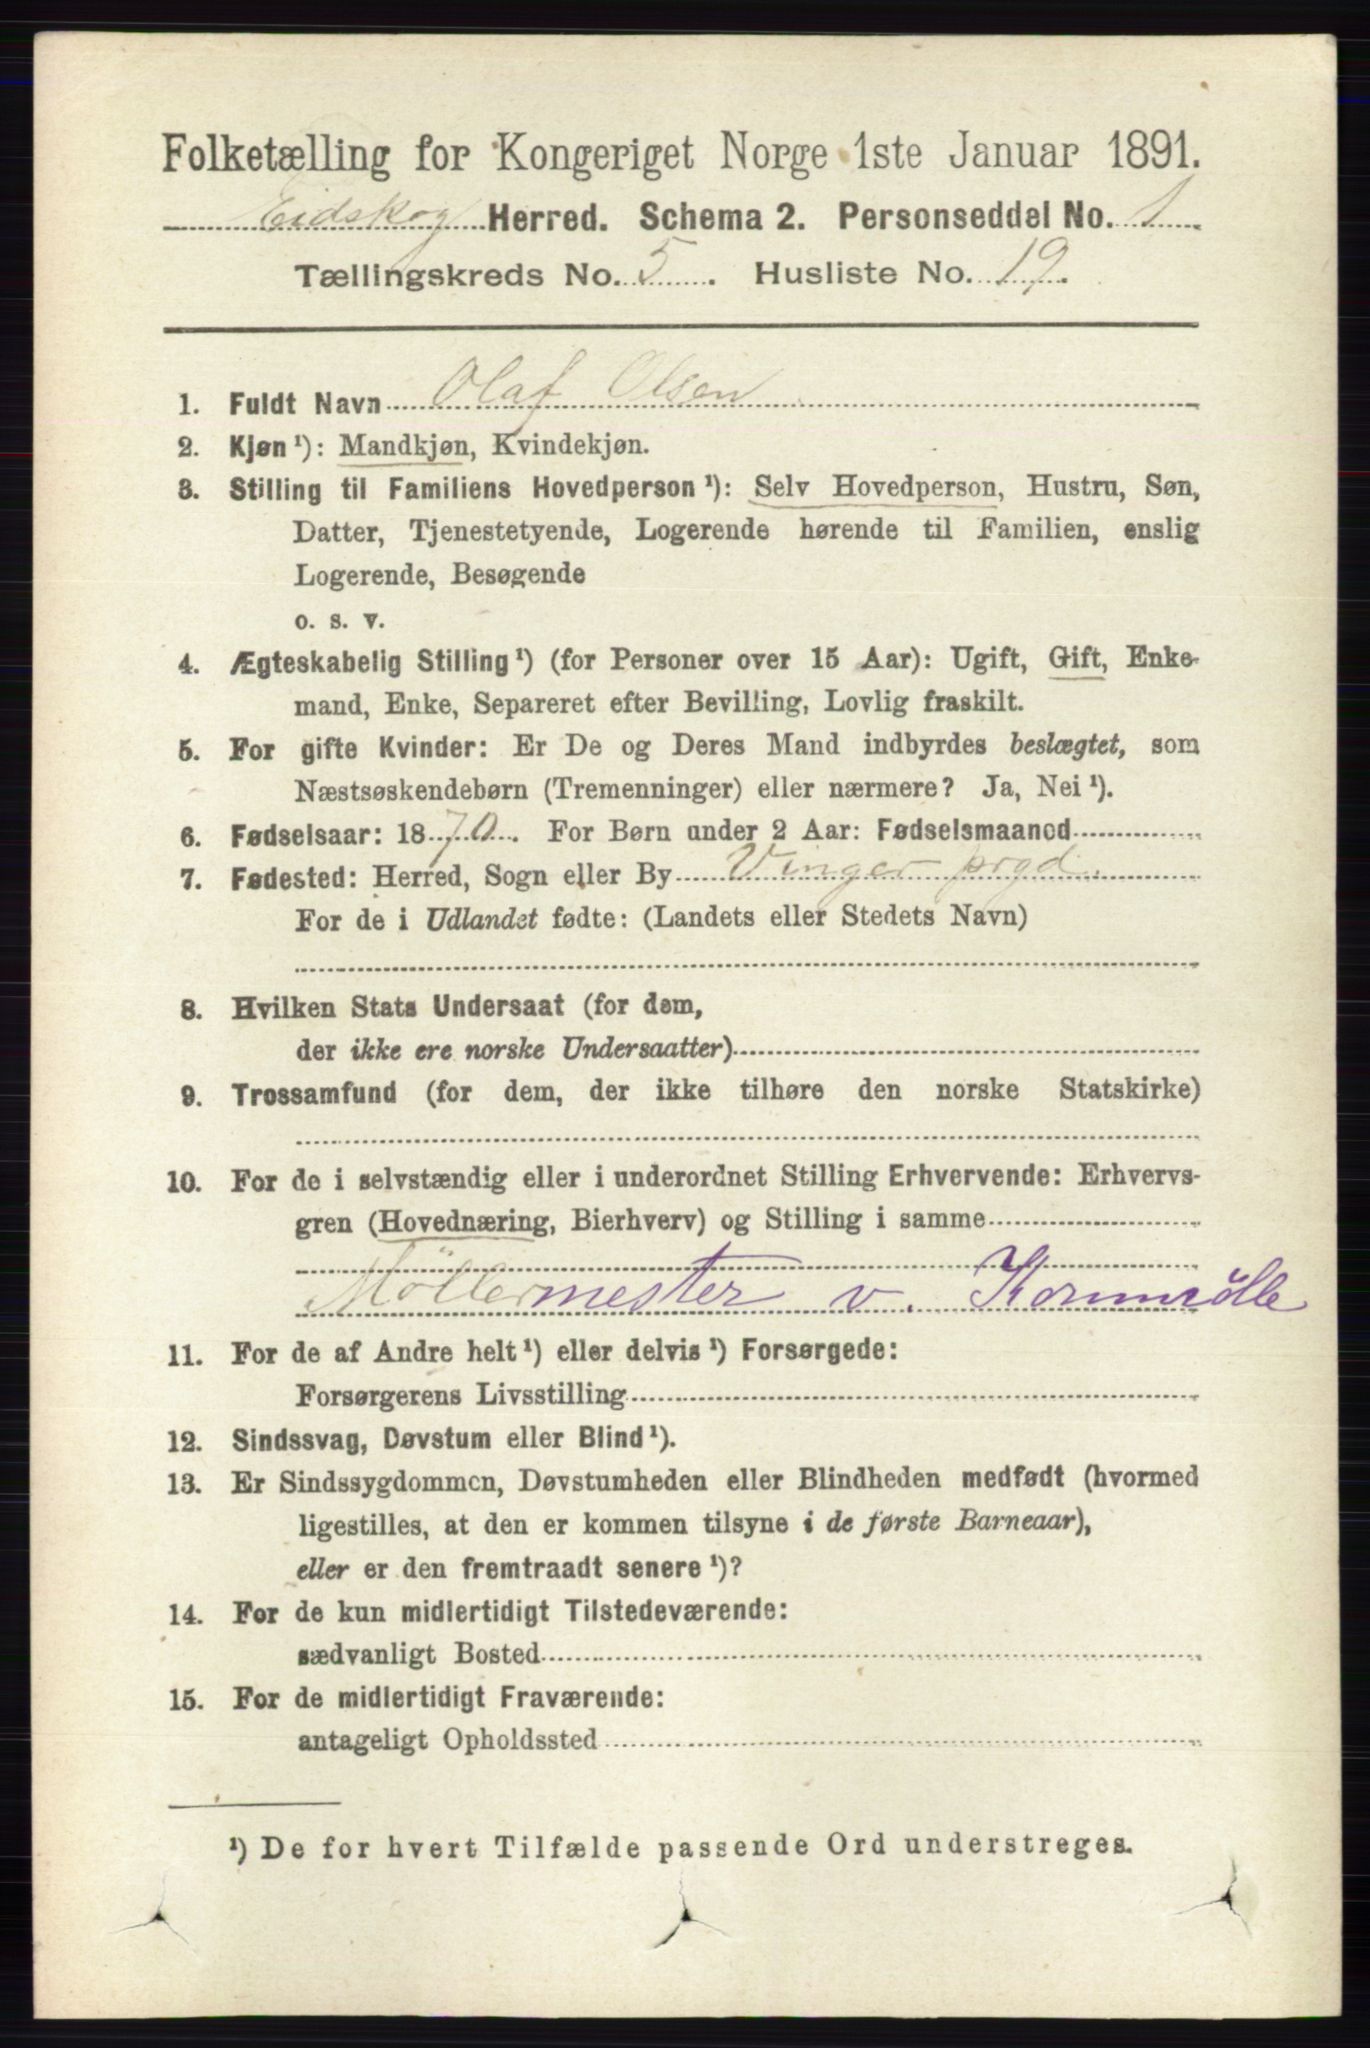 Folketælling for Kongeriget Norge 1ste Januar 1891.
Eidskog Herred. Schema 2. Personseddel No. 1
Tællingskreds No. 5. Husliste No. 19.
1. Fuldt Navn Olaf Olsen
2. Kjøn ¹): Mandkjøn, Kvindekjøn.
3. Stilling til Familiens Hovedperson ¹): Selv Hovedperson, Hustru, Søn,
Datter, Tjenestetyende, Logerende hørende til Familien, enslig
Logerende, Besøgende
o. s. v.
4. Ægteskabelig Stilling ¹) (for Personer over 15 Aar): Ugift, Gift, Enke-
mand, Enke, Separeret efter Bevilling, Lovlig fraskilt.
5. For gifte Kvinder: Er De og Deres Mand indbyrdes beslægtet, som
Næstsøskendebørn (Tremenninger) eller nærmere? Ja, Nei ¹).
6. Fødselsaar: 1870. For Børn under 2 Aar: Fødselsmaaned
7. Fødested: Herred, Sogn eller By Vinger prgd.
For de i Udlandet fødte: (Landets eller Stedets Navn)
8. Hvilken Stats Undersaat (for dem,
der ikke ere norske Undersaatter)
9. Trossamfund (for dem, der ikke tilhøre den norske Statskirke)
10. For de i selvstændig eller i underordnet Stilling Erhvervende: Erhvervs-
gren (Hovednæring, Bierhverv) og Stilling i samme
Möllermester v. Kornmölle
11. For de af Andre helt ¹) eller delvis ¹) Forsørgede:
Forsørgerens Livsstilling
12. Sindssvag, Døvstum eller Blind ¹).
13. Er Sindssygdommen, Døvstumheden eller Blindheden medfødt (hvormed
ligestilles, at den er kommen tilsyne i de første Barneaar),
eller er den fremtraadt senere ¹)?
14. For de kun midlertidigt Tilstedeværende:
sædvanligt Bosted
15. For de midlertidigt Fraværende:
antageligt Opholdssted
¹) De for hvert Tilfælde passende Ord understreges.